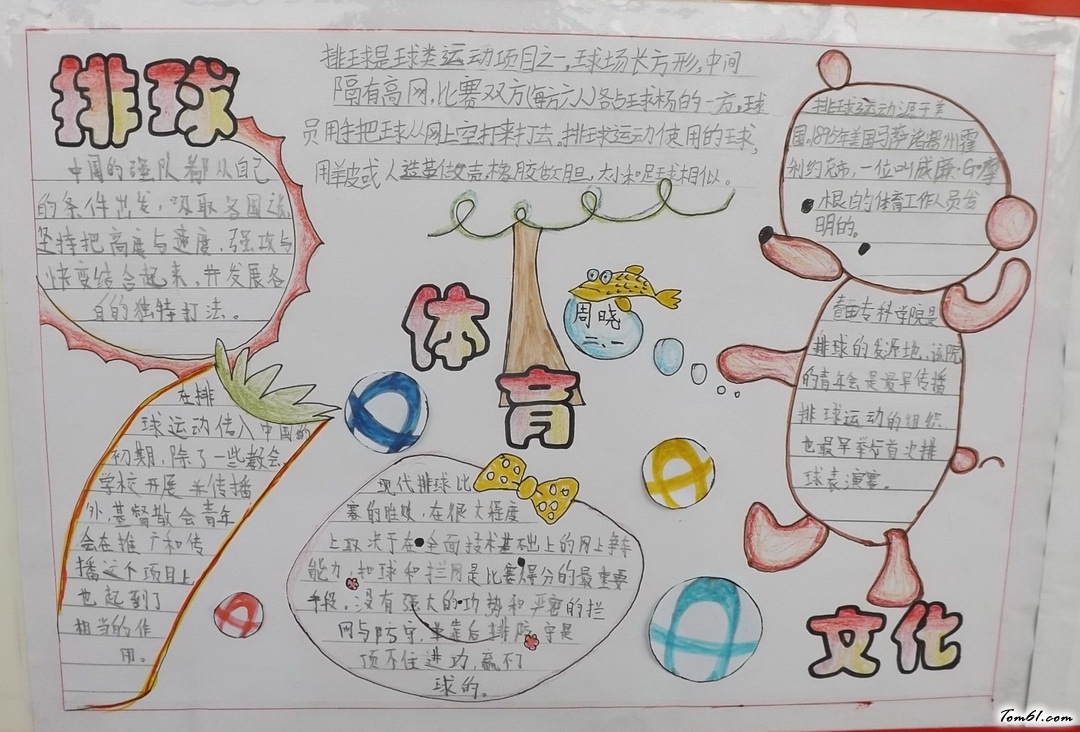 排球
排球是球类运动项目之一,球场长方形,中间
隔有高网,比赛双方(每方六人)各占球场的一方,球
员用手把球从网上空打来打去。排球运动使用的球,
用羊皮或人造革做壳,橡胶做胆,大小和足球相似。
中国的强队都从自己
的条件出发,吸取各国
坚持把高度与速度、强攻与
快变结合起来,并发展各
自的独特打法。
在排
球运动传入中国的
初期,除了一些教会
学校开展并传播
外,基督教会青年
会在推广和传
播这个项目上
也起到了
相当的作
用。
体育
周晓
二、一
现代排球比
赛的胜败,在很大程度
上取决于在全面技术基础上的网上争夺
能力,扣球和拦网是比赛得分的最重要
手段,没有强大的攻势和严密的拦
网与防守,单靠后排防守是
顶不住进攻,赢不了
球的。
排球运动源于美
国。1895年美国马萨诸塞州霍
利约克市,一位叫威廉·G·摩
根的体育工作人员发
明的。
春田专科学院是
排球的发源地,该院
的青年会是最早传播
排球运动的组织,
也最早举行首次排
球表演赛。
文化
Tom61.com